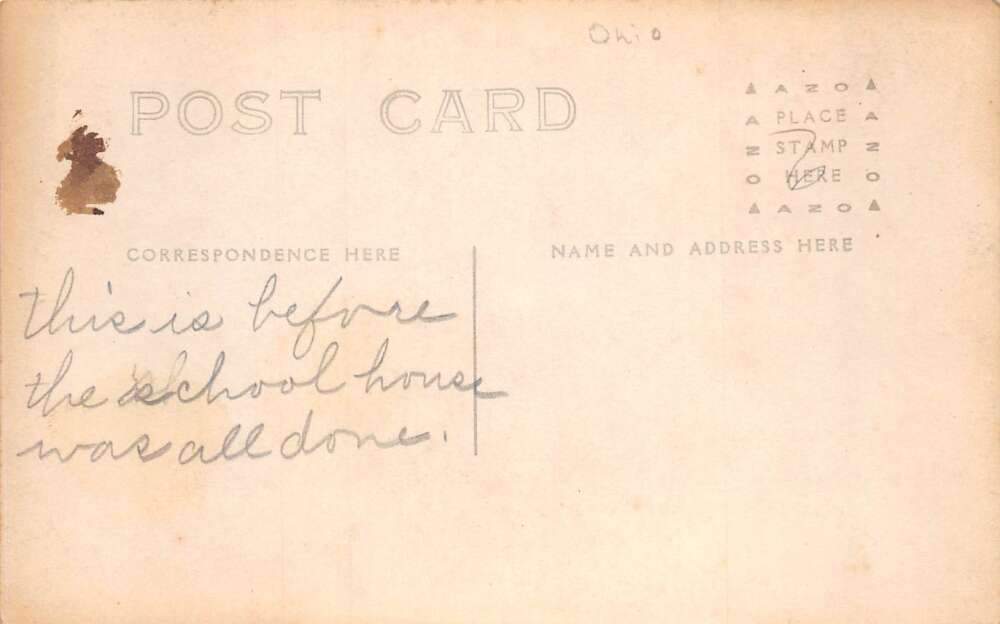 Ohio
POST CARD
▲ A Z O ▲
A PLACE A
N STAMP N
O HERE O
▲ A Z O ▲
CORRESPONDENCE HERE
NAME AND ADDRESS HERE
this is before
the school house
was all done.